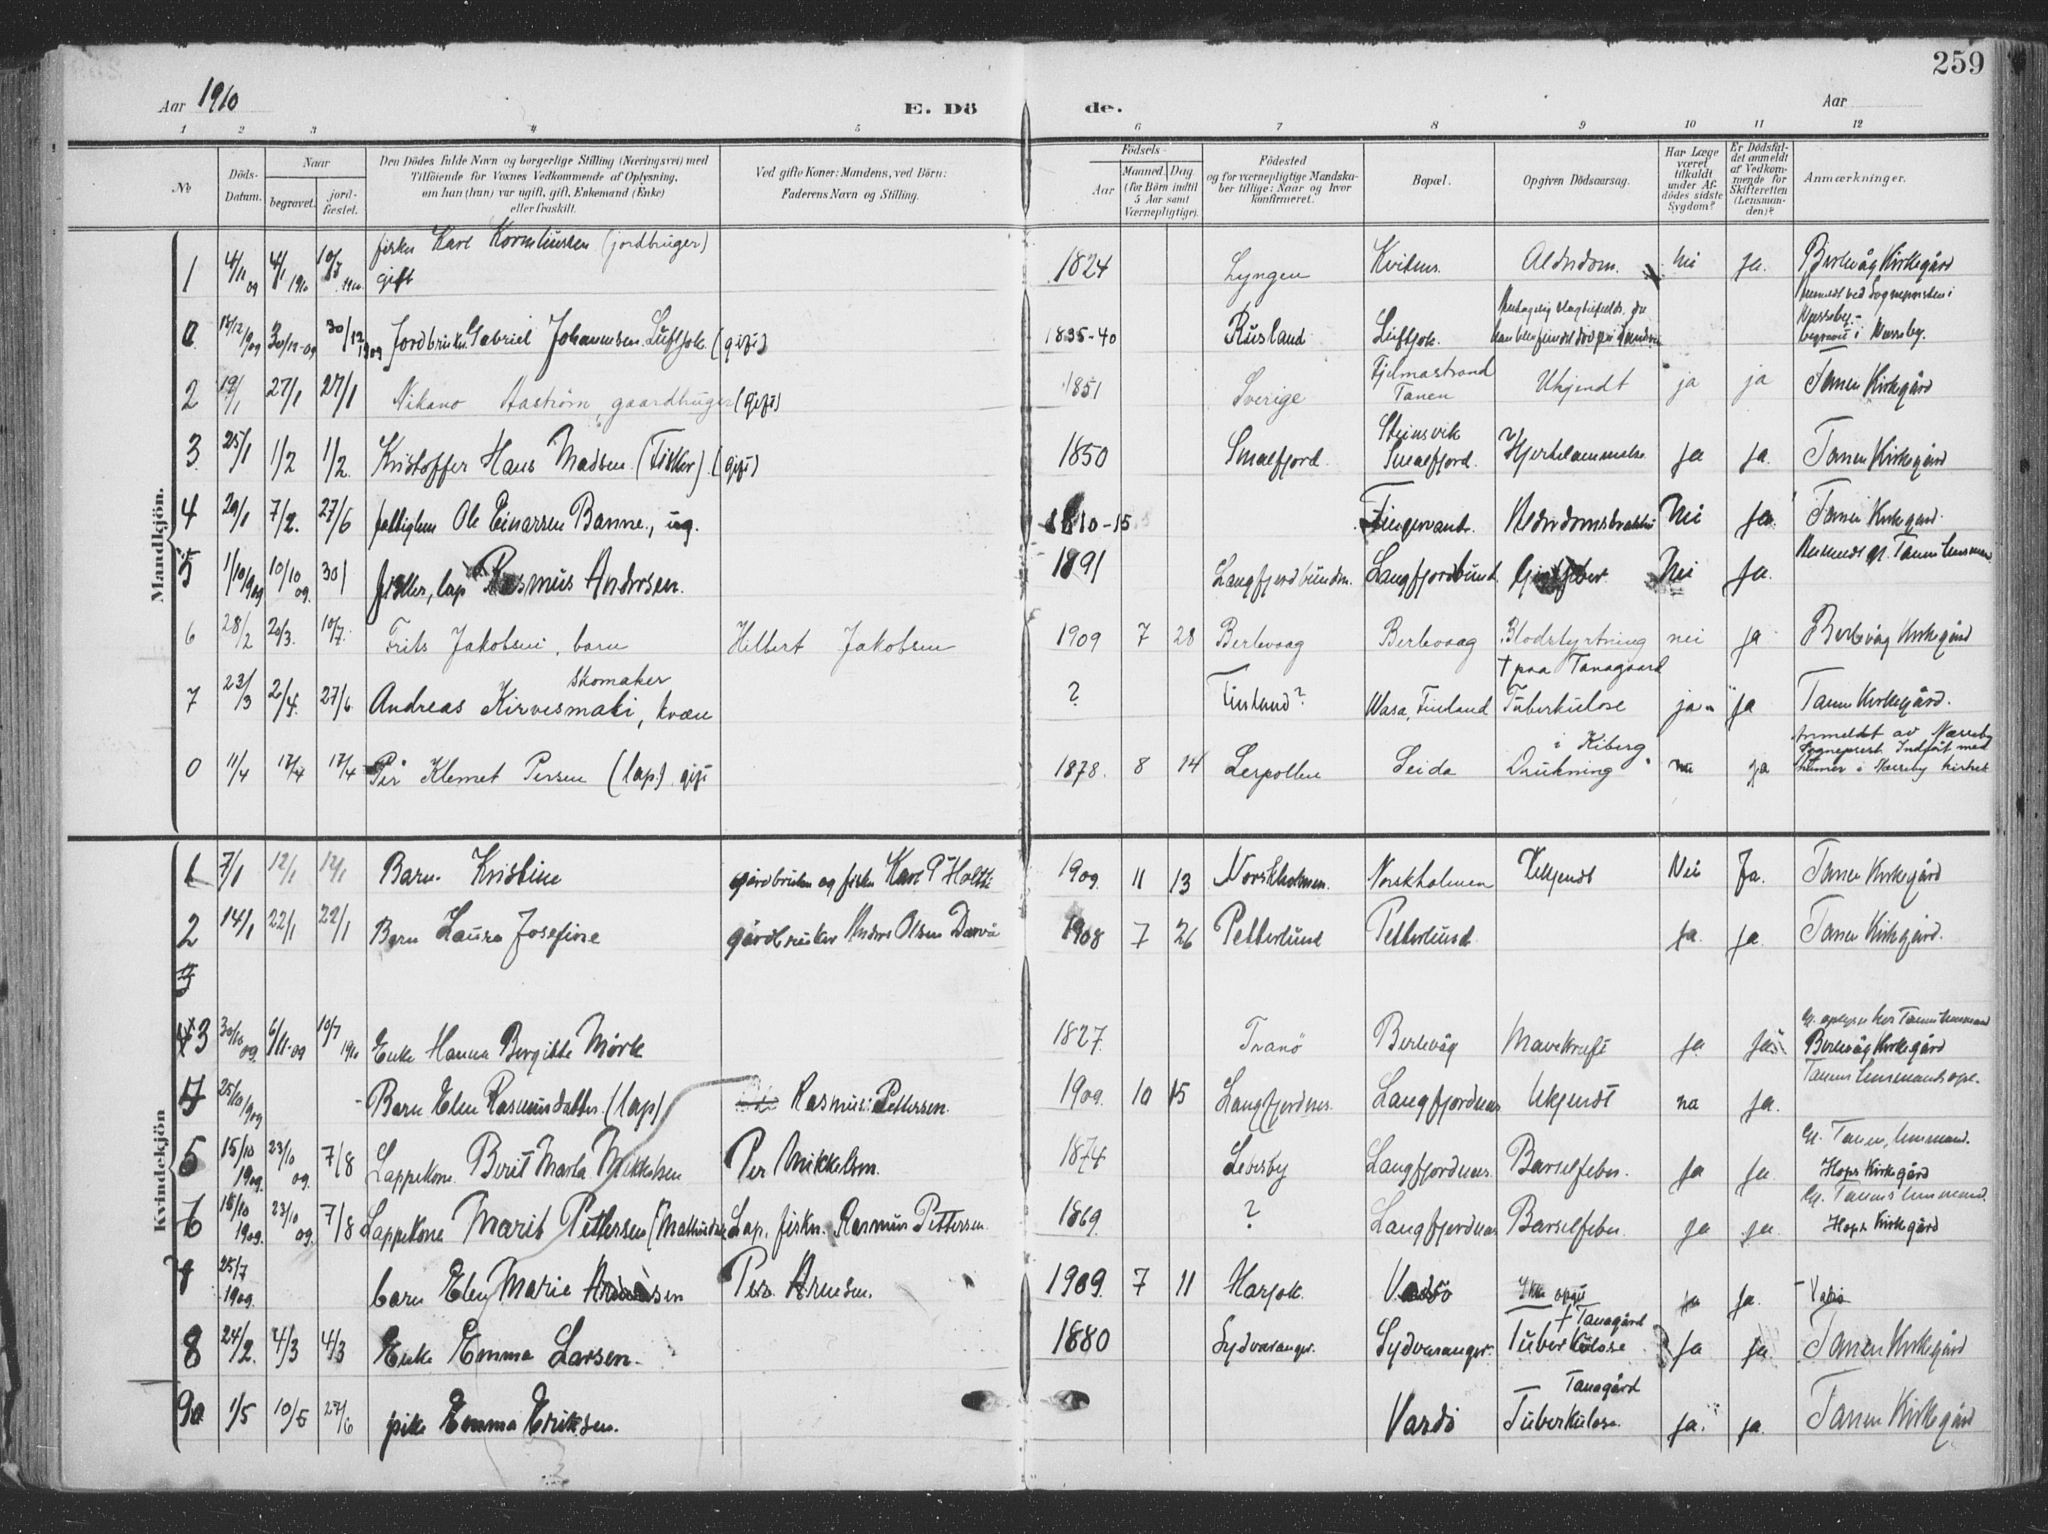 259
Aar 1910
E. Dö
de.
Aar
1 2 3 4 5 6 7 8 9 10 11 12
No
Döds-
Datum.
Naar
begravet.
jord-
fæstet.
Den Dödes fulde Navn og borgerlige Stilling (Næringsvei) med
Tilföiende for Voxnes Vedkommende af Oplysning,
om han (hun) var ugift, gift, Enkemand (Enke)
eller fraskilt.
Ved gifte Koner: Mandens, ved Börn:
Faderens Navn og Stilling.
Födsels-
Aar
Maaned. Dag
(for Börn indtil
5 Aar samt
Værnepligtige).
Födested
og for værnepligtige Mandska-
ber tillige: Naar og hvor
konfirmeret.
Bopæl.
Opgiven Dödsaarsag.
Har Læge
været
tilkaldt
under Af-
dödes sidste
Sygdom?
Er Dödsfal-
det anmeldt
af Vedkom-
mende for
Skifteretten
(Lensman-
den)?
Anmærkninger.
Mandkjön.
1 4/11 09 4/1 1910 10/7 1910 fisker Karl Korneliussen (jordbruger) gift 1824 Lyngen Kvitnes. Aldrdom. Nei ja. Berlevåg Kirkegård
0 30/12 1909 Jordbruker Gabriel Johannesen Luftjok (gift) 1835-40 Rusland Luftjok. begravet i Næsseby.
2 19/1 27/1 27/1 Nikano Aaström, gaardbruger (gift) 1851 Sverige Fjelmastrand Tanen Ukjendt ja ja Tanen Kirkegård
3 25/1 1/2 1/2 Kristoffer Hans Madsen (Fisker) (gift) 1850 Smalfjord. Steinsvik Smalfjord. Hjertelammelse ja ja. Tanen Kirkegård
4 29/1 7/2. 27/6 fattiglem Ole Einarsen Banne, ug. 1810-15 Nei Ja. Tanen Kirkegård.
5 1/10 1909 10/10 09. 30 fisker, lap Rasmus Andersen. 1891 Langfjordbunden. Langfjordbund Nei Ja. Tanen lensmand
6 28/2 20/3. 10/7. Frits Jakobsen, barn Hilbert Jakobsen 1909 7 28 Berlevaag Berlevaag Blodstyrtning nei ja Berlevåg Kirkegård
7 23/3 2/4. 27/6 Andreas Kirvesmaki, skomaker kvæn ? Finland? Wasa, Finland † paa Tanagaard Tuberkulose ja ja Tanen Kirkegård.
0 11/4 17/4 17/4 Per Klemet Persen (lap) gift 1878. 8 14 Lerpollen Seida Drukning i Kiberg. ja Anmeldt av Næsseby Sogneprest Indført med
Kvindekjön
1 7/1 12/1 12/1 Barn Kristine gårdbruker og fisker Karl P Holth 1909. 11 13 Norskholmen. Norskholmen Ukjendt Nei Ja. Tanen Kirkegård
2 14/1 22/1 22/1 Barn Laura Josefine gårdbruker Anders Olsen 1908 7 26 Petterlund Petterlund ja. ja. Tanen Kirkegård.
3 30/10 09. 6/11-09 10/7 1910 Enke Hanna Bergitte Mørk 1827. Tranö Berlevåg Mavekræft ja ja Berlevåg Kirkegård
4 25/10 1909 Barn Elen Rasmusdatter (lap) Rasmus Pettersen. 1909. 10 15 Langfjordnes. Langfjordnes Ukjendt ja. Tanens lensmands opl.
5 15/10 1909. 23/10 09. 7/8 Lappekone Berit Marta Mikkelsen Per Mikkelsen. 1874 Lebesby Langfjordnes. Barselfeber. ja ja. Tanen, lensmand. Hops Kirkegård
6 18/10 1909. 23/10 09. 7/8 Lappekone Marit Pettersen Lap. fisker. Rasmus Pettersen. 1869. ? Langfjordnes Barselfeber. ja ja. Tanens lensmand. Hops Kirkegård
7 25/7 1909. barn Elen Marie 1909. 7 11 Harjok. Vadsö ja.
8 24/2. 4/3 4/3 Enke Emma Larsen. 1880 Sydvaranger. Sydvaranger. † Tanagård Tuberkulose ja ja. Tanen Kirkegård
9 1/5 10/5 27/6 pike Emma Eriksen. Vardö Tanagård Tuberkulose. ja. ja. Tanen Kirkegård